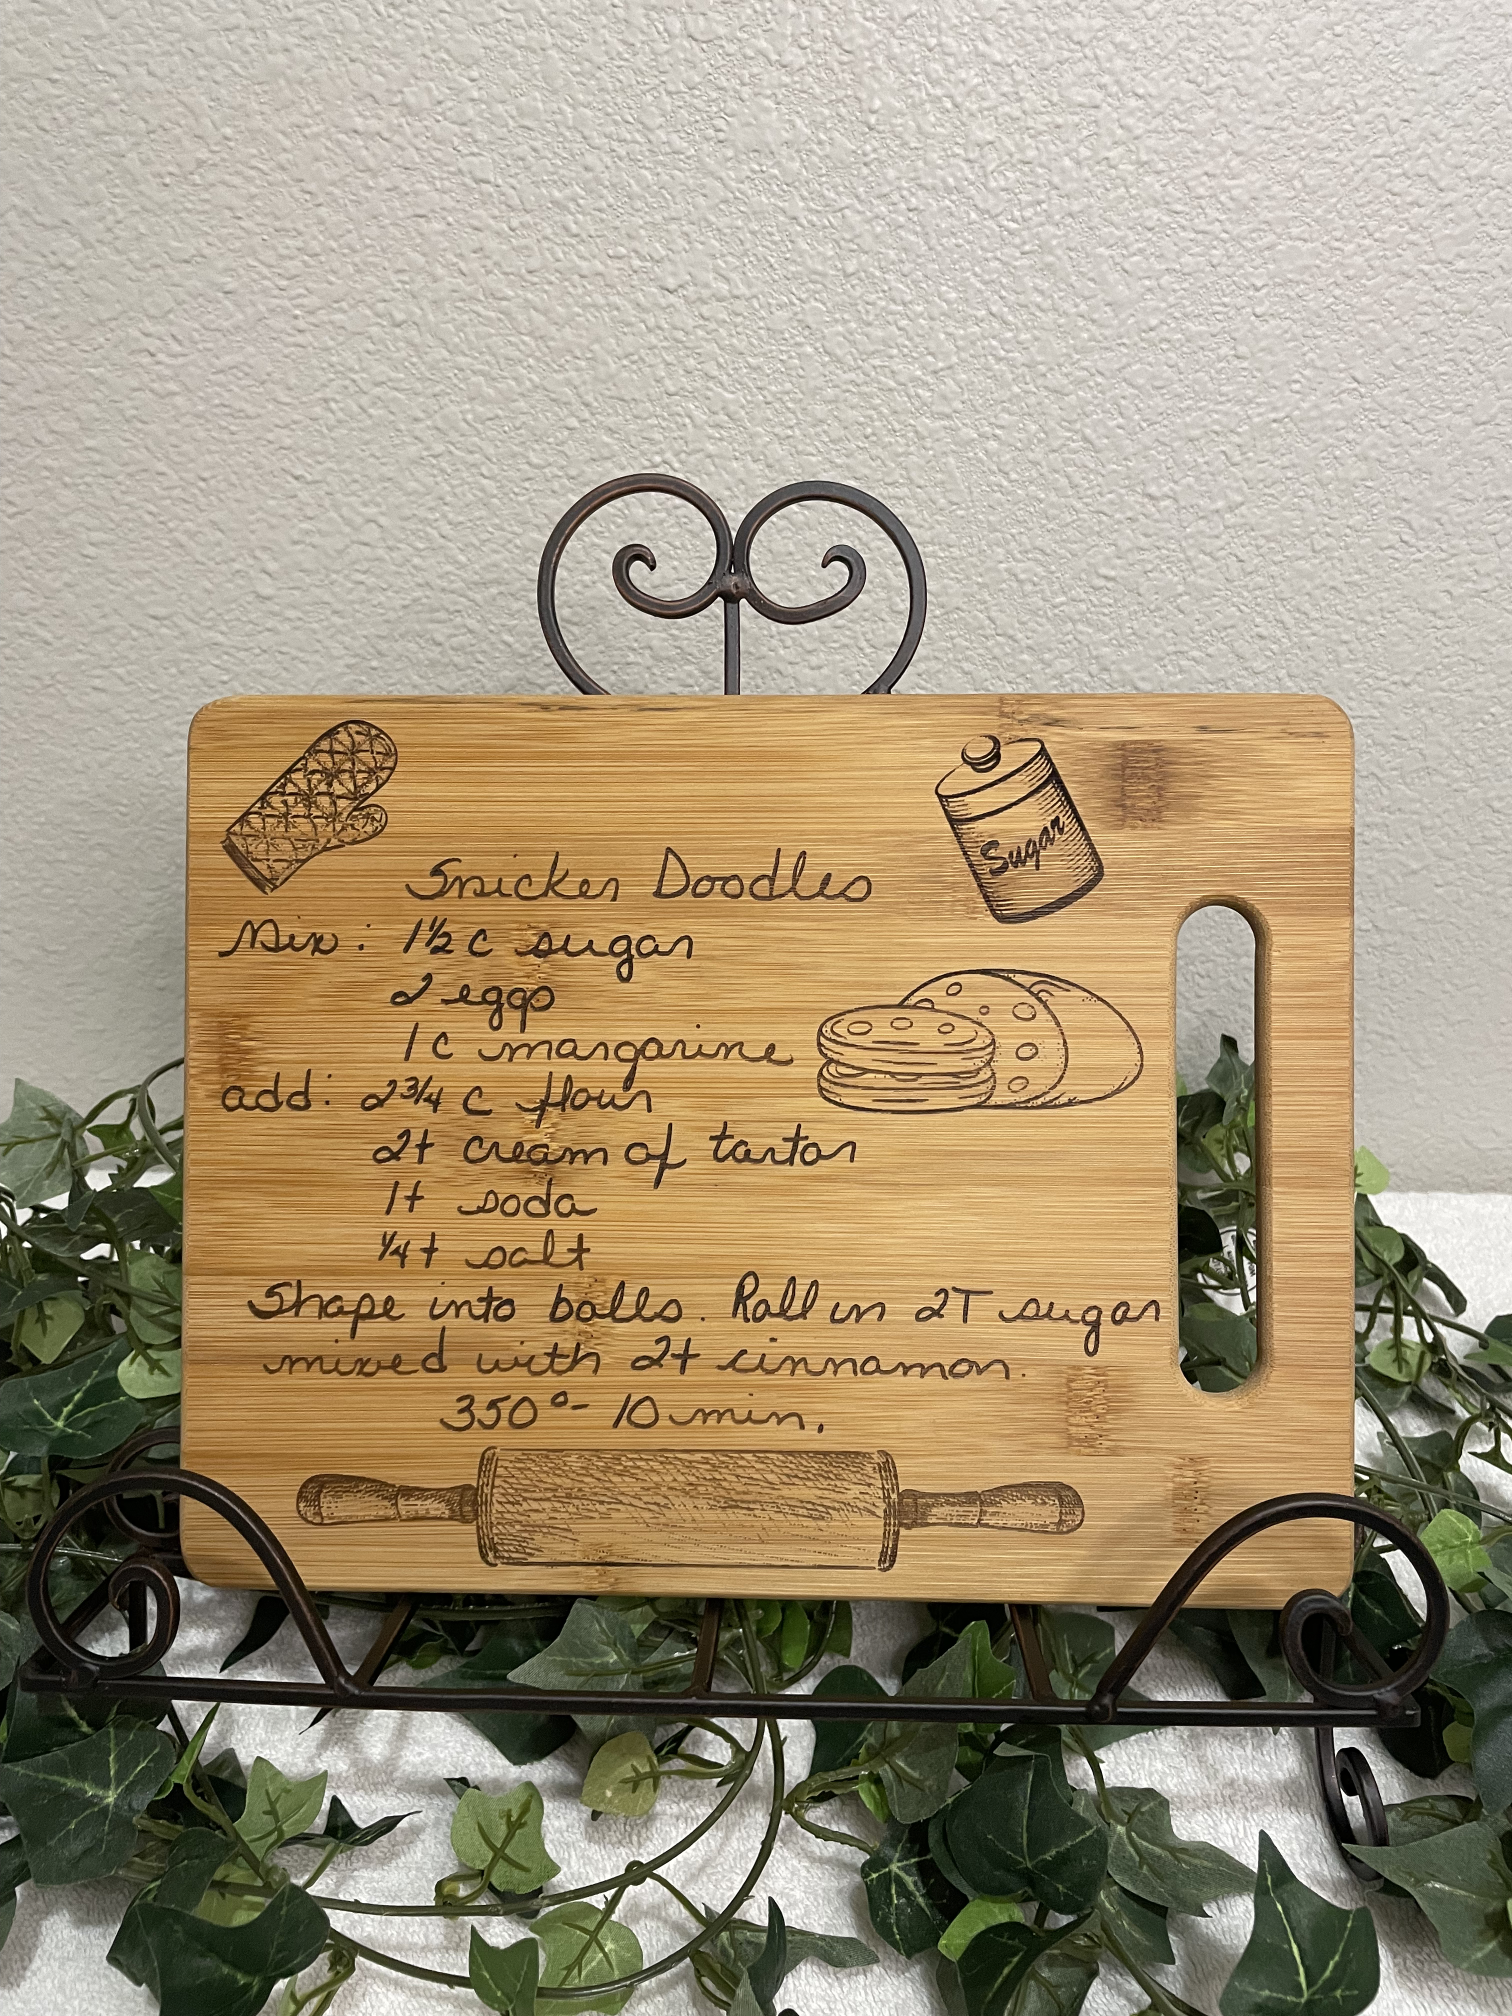 Sugar
Snicker Doodles
Mix: 1½ c sugar
2 eggs
1 c margarine
add: 2¾ c flour
2t cream of tartar
1t soda
¼t salt
Shape into balls. Roll in 2T sugar
mixed with 2t cinnamon.
350°- 10 min.